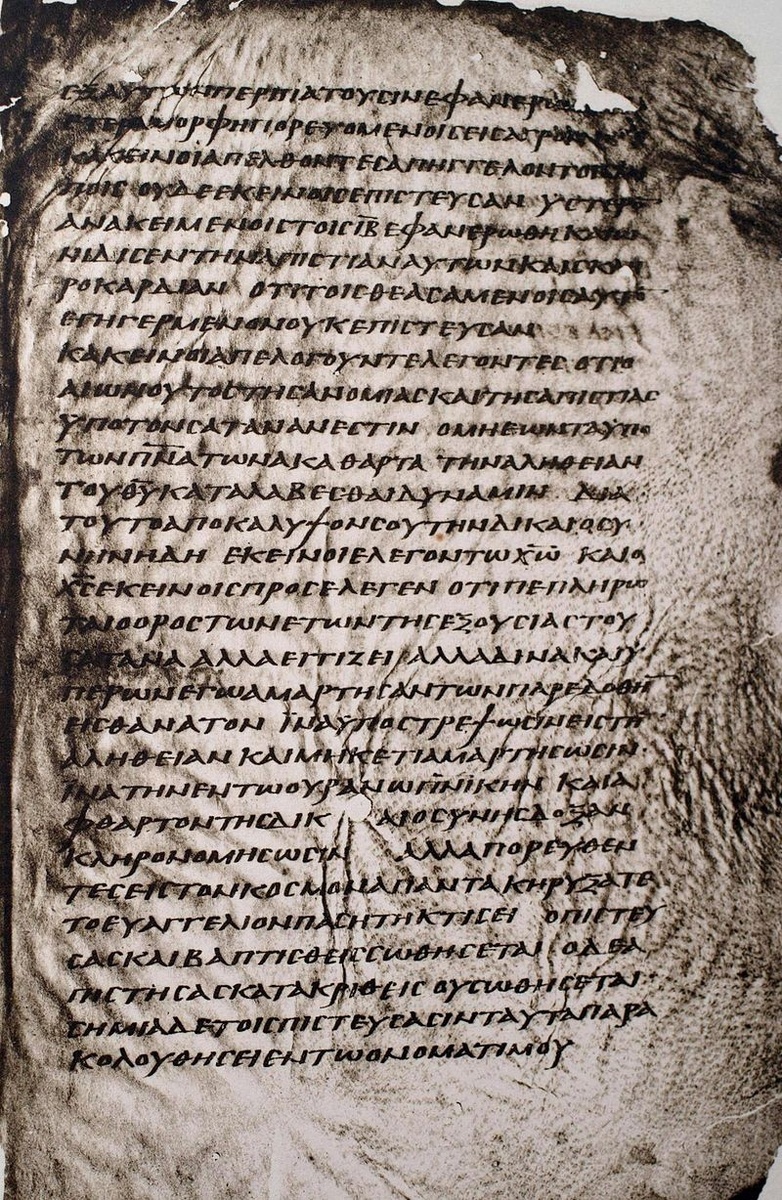 ΕΞΑΥΤΩΝΠΕΡΙΠΑΤΟΥCΙΝΕΦΑΝΕΡΩ
ΕΤΕΡΑΜΟΡΦΗΠΟΡΕΥΟΜΕΝΟΙCΕΙCΑΓΡΟΝ
ΚΑΚΕΙΝΟΙΑΠΕΛΘΟΝΤΕCΑΠΗΓΓΕΛΟΝΤΟΙCΛΟΙ
ΠΟΙC ΟΥΔΕΕΚΕΙΝΟΙCΕΠΙCΤΕΥCΑΝ ΥCΤΕΡΟ̅
ΑΝΑΚΕΙΜΕΝΟΙCΤΟΙCΙ̅Β̅ΕΦΑΝΕΡΩΘΗΚΑΙΩ
ΝΙΔΙCΕΝΤΗΝΑΠΙCΤΙΑΝΑΥΤΩΝΚΑΙCΚΛΗ
ΡΟΚΑΡΔΙΑΝ ΟΤΙΤΟΙCΘΕΑCΑΜΕΝΟΙCΑΥΤΟ̅
ΕΓΗΓΕΡΜΕΝΟΝΟΥΚΕΠΙCΤΕΥCΑΝ
ΚΑΚΕΙΝΟΙΑΠΕΛΟΓΟΥΝΤΕΛΕΓΟΝΤΕC ΟΤΙΟ
ΑΙΩΝΟΥΤΟCΤΗCΑΝΟΜΙΑCΚΑΙΤΗCΑΠΙCΤΙΑC
ΥΠΟΤΟΝCΑΤΑΝΑΝΕCΤΙΝ ΟΜΗΕΩΝΤΑΥΠΟ
ΤΩΝΠ̅Ν̅ΑΤΩΝΑΚΑΘΑΡΤΑ ΤΗΝΑΛΗΘΕΙΑΝ
ΤΟΥΘ̅Υ̅ΚΑΤΑΛΑΒΕCΘΑΙΔΥΝΑΜΙΝ ΔΙΑ
ΤΟΥΤΟΑΠΟΚΑΛΥΨΟΝCΟΥΤΗΝΔΙΚΑΙΟCΥ
ΝΗΝΗΔΗ ΕΚΕΙΝΟΙΕΛΕΓΟΝΤΩΧ̅Ω̅ ΚΑΙΟ
Χ̅C̅ΕΚΕΙΝΟΙCΠΡΟCΕΛΕΓΕΝ ΟΤΙΠΕΠΛΗΡΩ
ΤΑΙΟΟΡΟCΤΩΝΕΤΩΝΤΗCΕΞΟΥCΙΑCΤΟΥ
CΑΤΑΝΑ ΑΛΛΑΕΓΓΙΖΕΙ ΑΛΛΑΔΙΝΑΚΑΙΥ
ΠΕΡΩΝΕΓΩΑΜΑΡΤΗCΑΝΤΩΝΠΑΡΕΔΟΘΗ̅
ΕΙCΘΑΝΑΤΟΝ ΪΝΑΥΠΟCΤΡΕΨΩCΙΝΕΙCΤΗ̅
ΑΛΗΘΕΙΑΝ ΚΑΙΜΗΚΕΤΙΑΜΑΡΤΗCΩCΙΝ
ΪΝΑΤΗΝΕΝΤΩΟΥΡΑΝΩΠ̅Ν̅ΙΚΗΝ ΚΑΙΑ
ΦΘΑΡΤΟΝΤΗCΔΙΚ ΑΙΟCΥΝΗCΔΟΞΑΝ
ΚΛΗΡΟΝΟΜΗCΩCΙΝ ΑΛΛΑΠΟΡΕΥΘΕΝ
ΤΕCΕΙCΤΟΝΚΟCΜΟΝΑΠΑΝΤΑΚΗΡΥΞΑΤΕ
ΤΟΕΥΑΓΓΕΛΙΟΝΠΑCΗΤΗΚΤΙCΕΙ ΟΠΙCΤΕΥ
CΑCΚΑΙΒΑΠΤΙCΘΕΙCCΩΘΗCΕΤΑΙ ΟΔΕΑ
ΠΙCΤΗCΑCΚΑΤΑΚΡΙΘΕΙC ΟΥCΩΘΗCΕΤΑΙ
CΗΜΙΑΔΕΤΟΙCΠΙCΤΕΥCΑCΙΝΤΑΥΤΑΠΑΡΑ
ΚΟΛΟΥΘΗCΕΙΕΝΤΩΟΝΟΜΑΤΙΜΟΥ